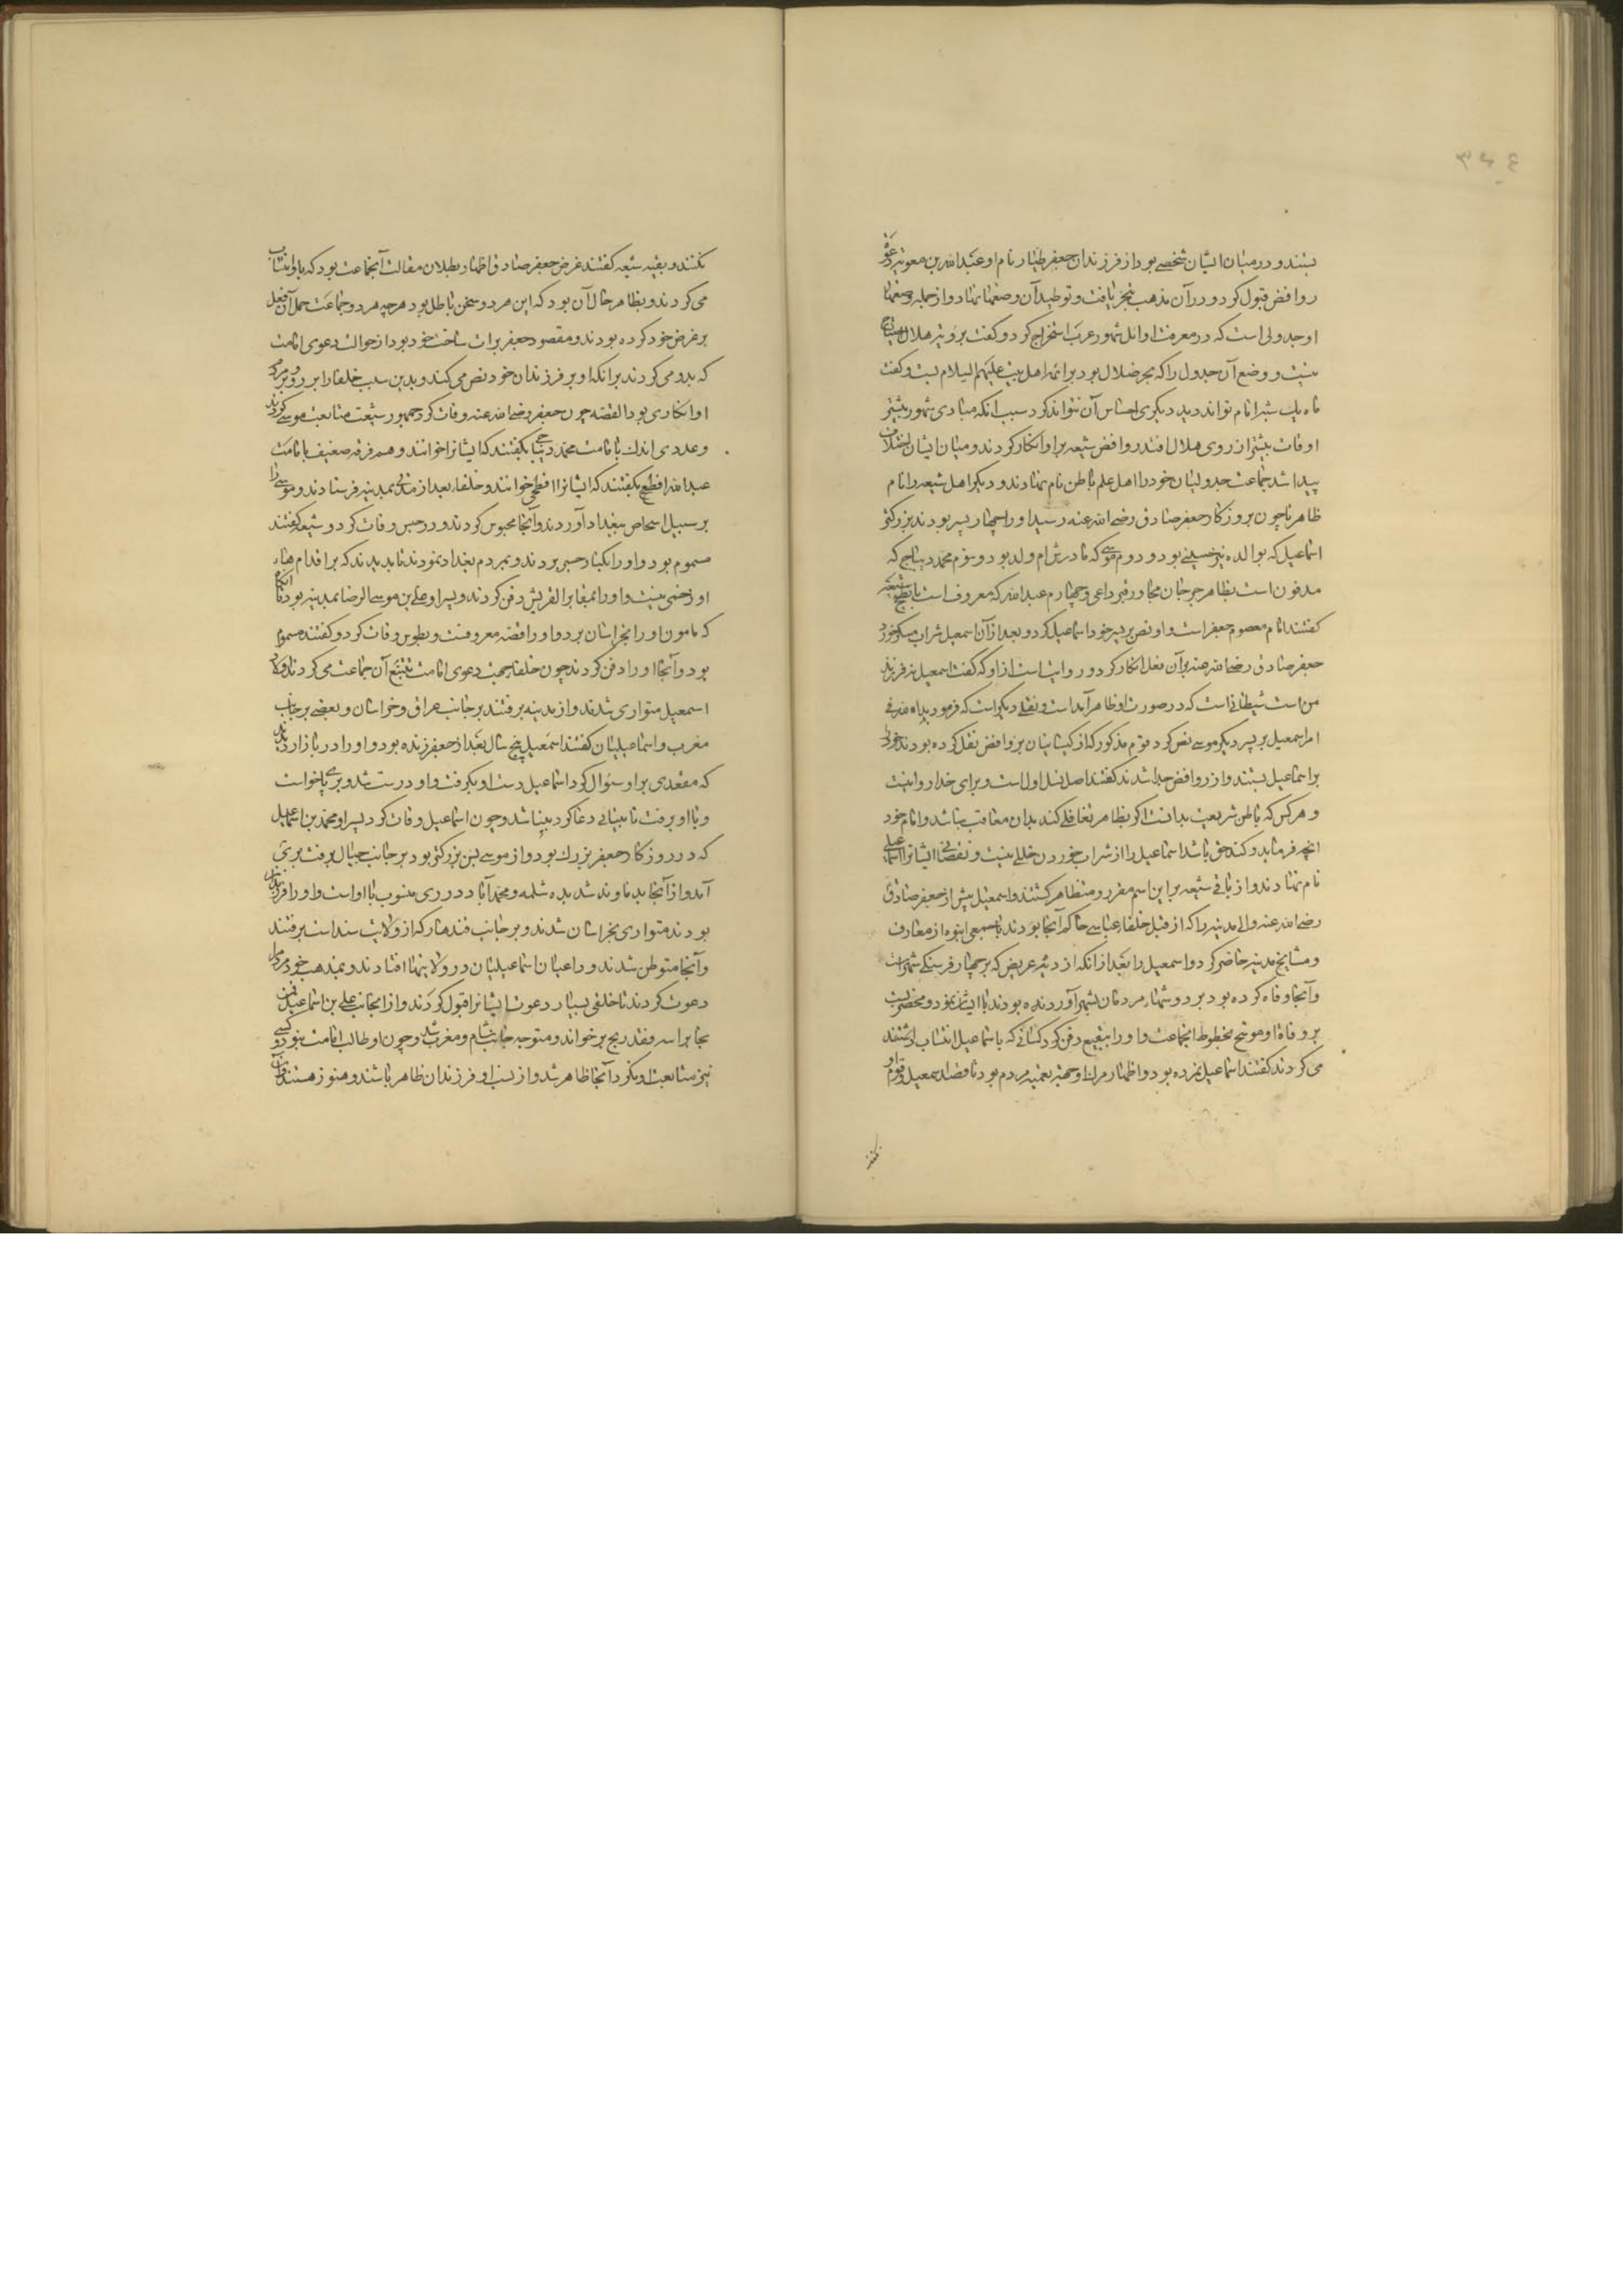 ۳۲٤
بستند و در میان ایشان شخصی بود از فرزندان جعفر طیار نام او عبدالله بن معویه دعوة
روافض قبول کرد و در آن مذهب تبحر یافت و توطید آن وضعها نهاد و از جمله وضعهاء
او جدولی است که در معرفت اوائل شهور عرب استخراج کرد و گفت برویت هلال احتیاج
نیست و وضع آن جدول را که بحر ضلال بود بر ائمه اهل بیت علیهم السلام بست و گفت
ماه یک شبه امام تواند دید دیگری احساس آن نتواند کرد سبب آنکه مبادی شهور بیشتر
اوقات پیشتر از روی هلال افتد روافض شیعه بر او انکار کردند و میان ایشان اختلاف
پیدا شد جماعت جدولیان خود را اهل علم باطن نام نهادند و دیگر اهل شیعه را نام
ظاهر تا چون بروزگار جعفر صادق رضی الله عنه رسید او را چهار پسر بودند بزرگتر
اسماعیل که بوالده حسینی بود و دوم موسی که مادرش ام ولد بود و سوم محمد دیباج که
مدفون است بظاهر جرجان مجاور قبر داعی و چهارم عبدالله که معروف است بافطح شیعه
گفتند امام معصوم جعفر است و او نص بر پسر خود اسماعیل کرد و بعد از آن اسمعیل شراب میخورد
جعفر صادق رضی الله عنه بر آن فعل انکار کرد و روایت است از او که گفت اسمعیل نه فرزند
من است شیطانی است که در صورت او ظاهر آمد است و نقلی دیگر است که فرمود بداء لله فی
امر اسمعیل بر پسر دیگر موسی نص کرد قوم مذکور که از کیسانیان بروافض نقل کرده بودند خود را
بر اسماعیل بستند و از روافض جدا شدند گفتند اصل نص اول است و بدا بر خدا روا نیست
و هر کس که باطن شریعت بدانست اگر بظاهر تغافلی کند بدان معاقب نباشد و امام خود
انچه فرماید و کند حق باشد اسماعیل را از شراب خوردن خللی نیست و نقصانی ایشانرا اسماعیلی
نام نهادند و از باقی شیعه بر این اسم مفرد و متظاهر گشتند و اسمعیل پیش از جعفر صادق
رضی الله عنه والی مدینه را که از قبل خلفاء عباسی حاکم آنجا بودند با جمعی انبوه از معارف
و مشایخ مدینه حاضر کرد و اسمعیل را بعد از آنکه از دیه عریض که بر چهار فرسنگی شهر است
و آنجا وفاة کرده بود بر دوشهاء مردمان بشهر آورده بودند با ایشان نمود و محضری بست
بر وفاة او موشح بخطوط انجماعت و او را ببقیع دفن کرد کسانی که باسماعیل انتساب داشتند
می کردند گفتند اسماعیل نمرده بود و اظهار مرگ او جهت تعمیه مردم بود تا قصد اسمعیل و قوم او
نکنند و بقیه شیعه گفتند غرض جعفر صادق اظهار بطلان مقالت آنجماعت بود که باو انتساب
می کردند و بظاهر حال آن بود که این هر دو سخن باطل بود هر چه هر دو جماعت حمل آن فعل
بر غرض خود کرده بودند و مقصود جعفر برات ساحت خود بود از حوالت دعوی امامت
که بدو می کردند برانکه او بر فرزندان خود نص می کند و بدین سبب خلفا را بر او و بر مردم
او انکاری بود القصه چون جعفر رضی الله عنه وفات کرد جمهور شیعت متابعت موسی کردند
و عددی اندک بامامت محمد دیباج بگفتند که ایشانرا خوانند و هم فرقه ضعیف بامامت
عبدالله افطح بگفتند که ایشانرا افطحی خوانند و خلفا بعد از مدتی بمدینه فرستادند و موسی را
بر سبیل اشخاص ببغداد آوردند و آنجا محبوس کردند و در حبس وفات کرد و شیعه گفتند
مسموم بود و او را بکنار جسر بردند و بمردم بغداد نمودند تا بدیدند که بر اندام هاء
او زخمی نیست و او را بمقابر القریش دفن کردند و پسر او علی بن موسی الرضا بمدینه بود تا آنگاه
که مامون او را بخراسان برد و او را قصه معروفست و بطوس وفات کرد و گفتند مسموم
بود و آنجا او را دفن کردند چون خلفا جهت دعوی امامت تتبع آن جماعت می کردند اولاد
اسمعیل متواری شدند و از مدینه برفتند بر جانب عراق و خراسان و بعضی بر جانب
مغرب و اسماعیلیان گفتند اسمعیل پنج سال بعد از جعفر زنده بود و او را در بازار دیدند
که مقعدی بر او سوال کرد اسماعیل دست او بگرفت و او درست شد و بر پای خواست
و با او برفت نابینائی دعا کرد بینا شد و چون اسماعیل وفات کرد پسر او محمد بن اسماعیل
که در روزگار جعفر بزرگ بود و از موسی بسن بزرگتر بود بر جانب جبال برفت بری
آمد و از آنجا بدماوند شد بدیه شلمبه و محمدآباد در ری منسوب باو است و او را فرزندان
بودند متواری بخراسان شدند و بر جانب قندهار که از ولایت سند است برفتند
و آنجا متوطن شدند و داعیان اسماعیلیان در ولایتها افتادند و بمذهب خود مردم را
دعوت کردند تا خلقی بسیار دعوت ایشانرا قبول کردند و از انجانب علی بن اسماعیل
نجا براسه فقد ربح بر خواند و متوجه جانب شام و مغرب شد و چون او طالب امامت نبود و کسی
نیز متابعت او نکرد آنجا ظاهر شد و از نسب او فرزندان ظاهر باشند و هنوز هستند
نکنند